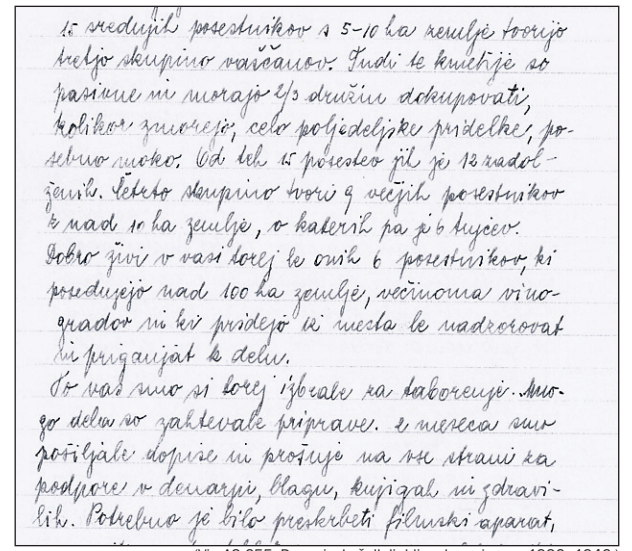 15 srednjih posestnikov s 5-10 ha zemlje tvorijo
tretjo skupino vaščanov. Tudi te kmetije so
pasivne in morajo 2/3 družin dokupovati,
kolikor zmorejo, celo poljedeljske pridelke, po-
sebno moko. Od teh 15 posestev jih je 12 zadol-
ženih. Četrto skupino tvori 9 večjih posestnikov
z nad 10 ha zemlje, v katerih pa je 6 tujcev.
Dobro živi v vasi torej le onih 6 posestnikov, ki
posedujejo nad 100 ha zemlje, večinoma vino-
gradov in ki pridejo iz mesta le nadzorovat
in priganjat k delu.
To vas smo si torej izbrale za taborenje. Mno-
go dela so zahtevale priprave. 2 meseca smo
pošiljale dopise in prošnje na vse strani za
podporo v denarju, blagu, knjigah in zdravi-
lih. Potrebno je bilo preskrbeti filmski aparat,